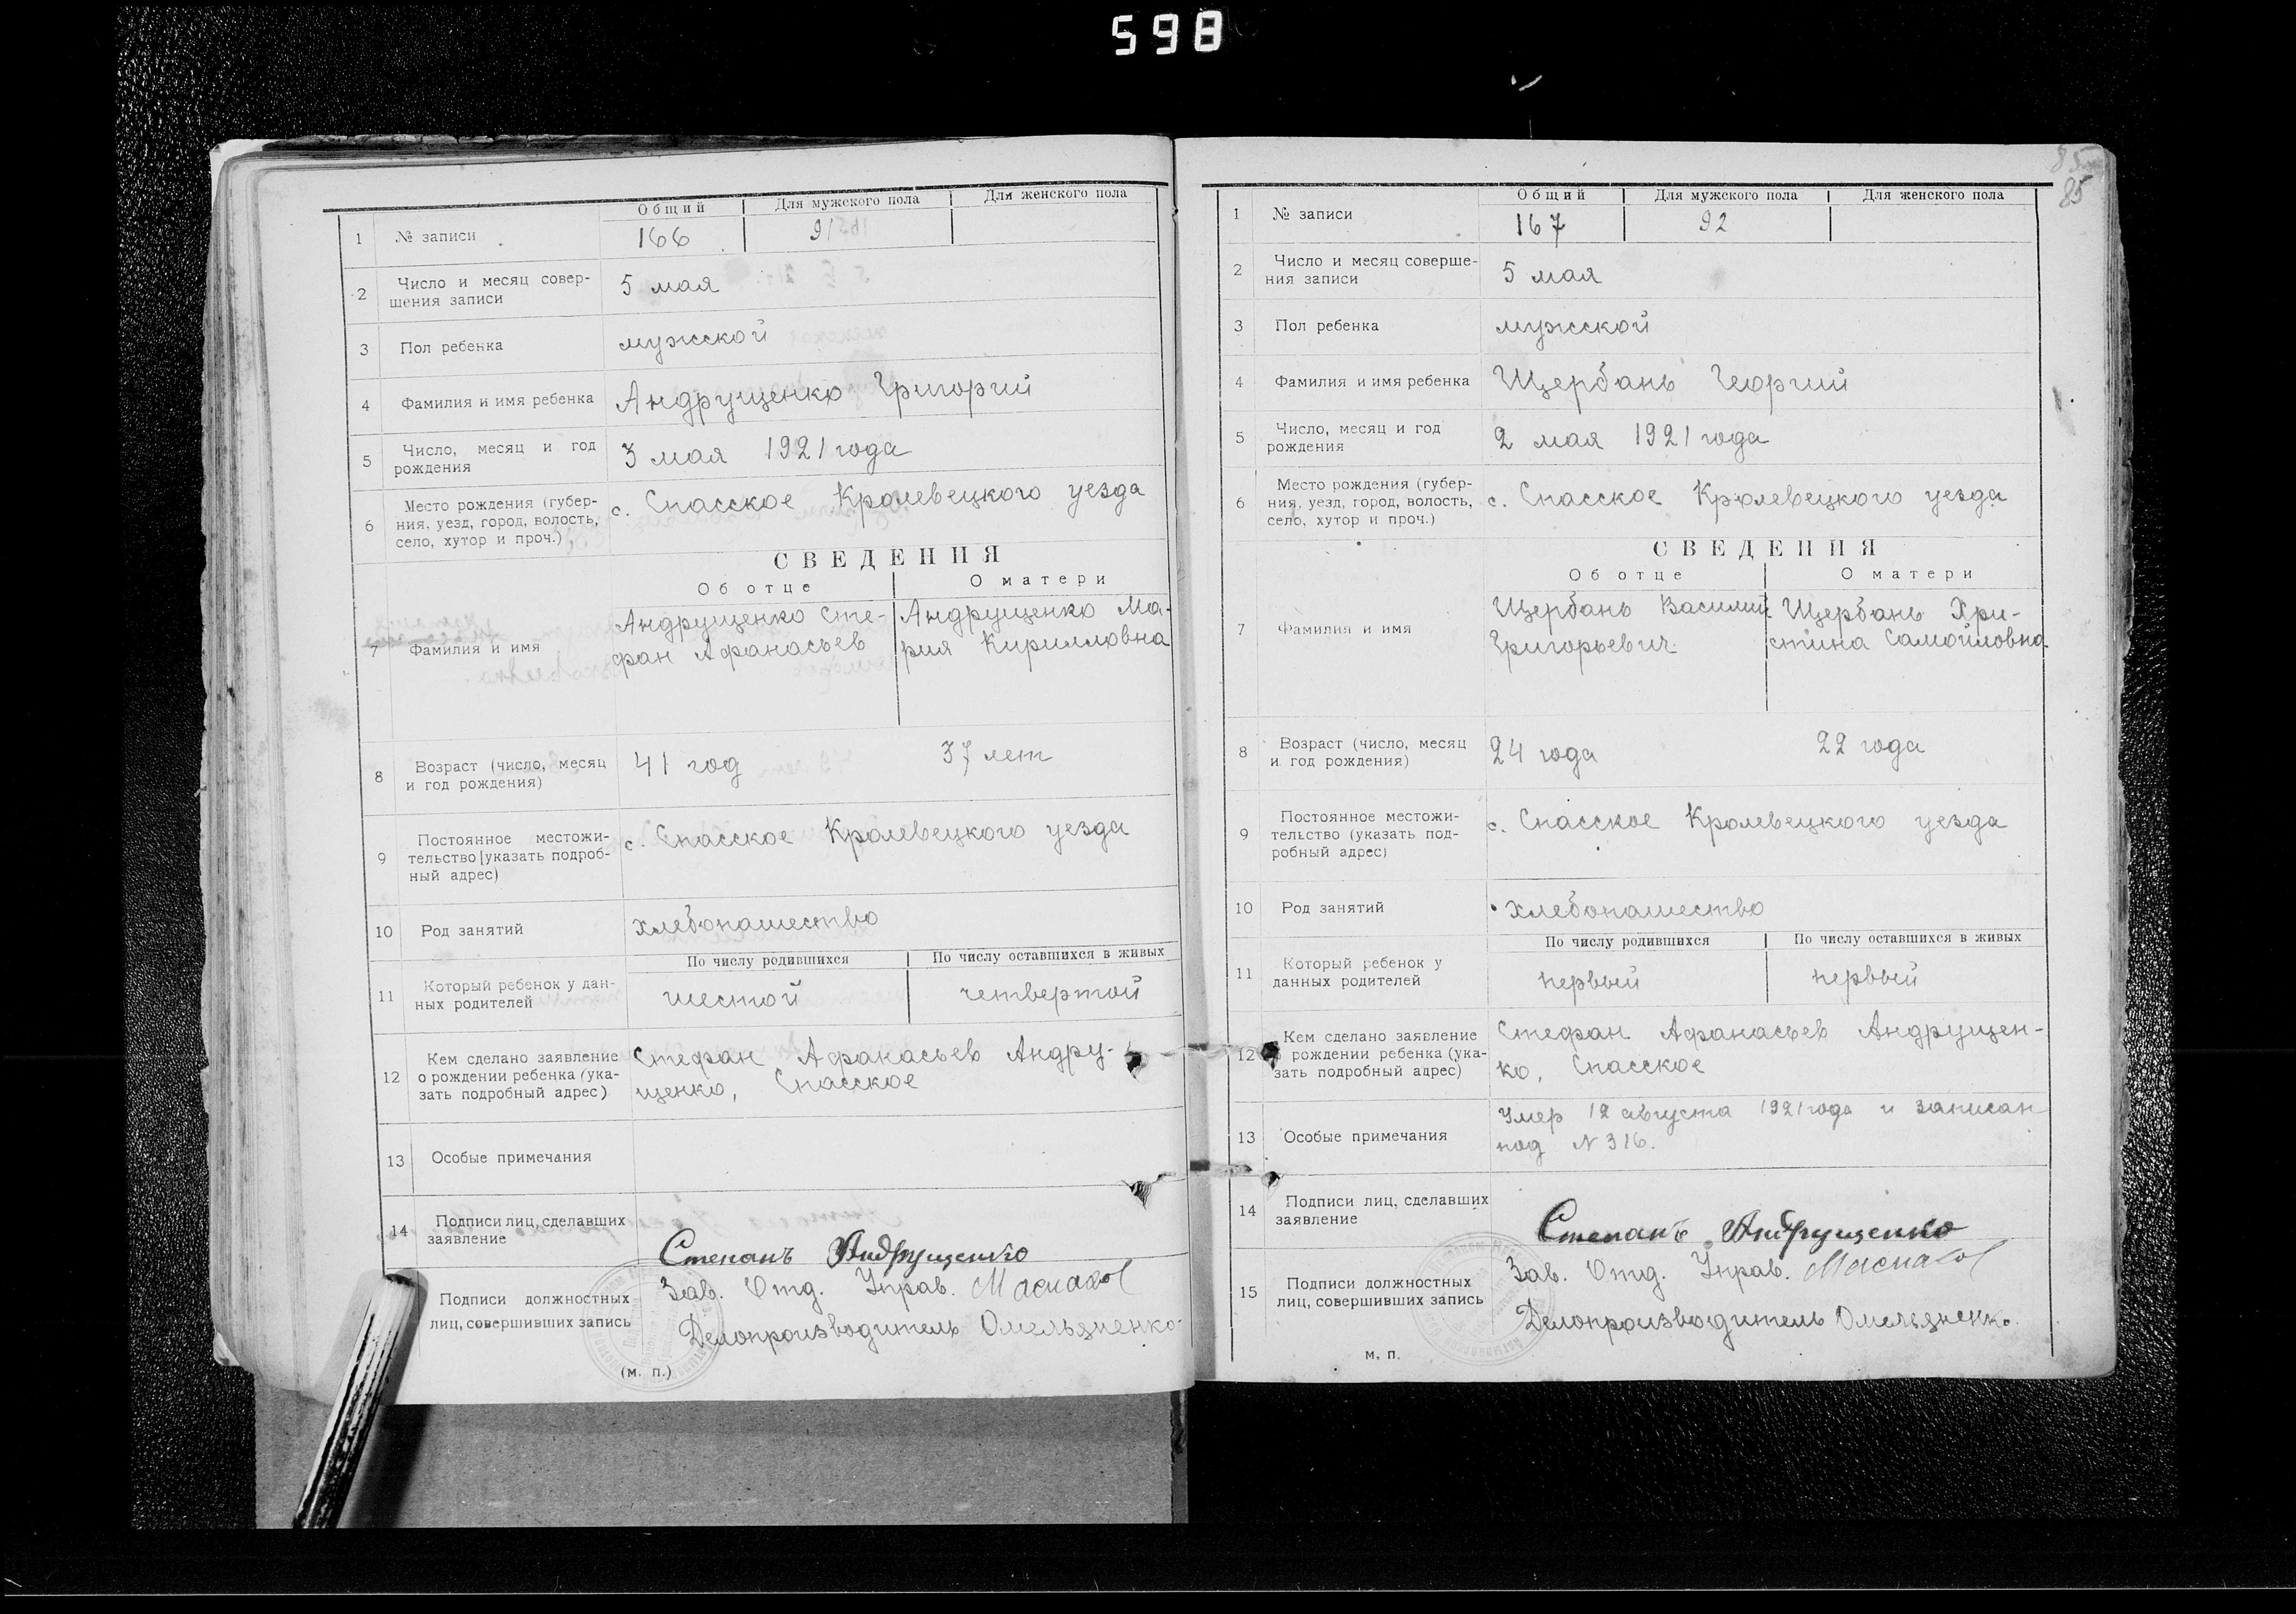 598
1 № записи
Общий Для мужского пола Для женского пола
166 91
2 Число и месяц совер-
шения записи
5 мая
3 Пол ребенка
мужской
4 Фамилия и имя ребенка
Андрущенко Григорий
5 Число, месяц и год
рождения
3 мая 1921 года
6 Место рождения (губер-
ния, уезд, город, волость,
село, хутор и проч.)
с. Спасское Кролевецкого уезда
СВЕДЕНИЯ
Об отце О матери
7 Фамилия и имя
Андрущенко Сте-
фан Афанасьев
Андрущенко Ма-
рия Кирилловна
8 Возраст (число, месяц
и год рождения)
41 год 37 лет
9 Постоянное местожи-
тельство (указать подроб-
ный адрес)
с. Спасское Кролевецкого уезда
10 Род занятий
хлебопашество
По числу родившихся По числу оставшихся в живых
11 Который ребенок у дан-
ных родителей
шестой четвертой
12 Кем сделано заявление
о рождении ребенка (ука-
зать подробный адрес)
Стефан Афанасьев Андру-
щенко, Спасское
13 Особые примечания
14 Подписи лиц, сделавших
заявление
Степанъ Андрущенко
Подписи должностных
лиц, совершивших запись
Зав. Отд. Управ.
Делопроизводитель Омельяненко
(м. п.)
85
85
1 № записи
Общий Для мужского пола Для женского пола
167 92
2 Число и месяц соверше-
ния записи
5 мая
3 Пол ребенка
мужской
4 Фамилия и имя ребенка
Щербань Георгий
5 Число, месяц и год
рождения
2 мая 1921 года
6 Место рождения (губер-
ния, уезд, город, волость,
село, хутор и проч.)
с. Спасское Кролевецкого уезда
СВЕДЕНИЯ
Об отце О матери
7 Фамилия и имя
Щербань Василий
Григорьевич
Щербань Хри-
стина Самойловна
8 Возраст (число, месяц
и год рождения)
24 года 22 года
9 Постоянное местожи-
тельство (указать под-
робный адрес)
с. Спасское Кролевецкого уезда
10 Род занятий
хлебопашество
По числу родившихся По числу оставшихся в живых
11 Который ребенок у
данных родителей
первый первый
12 Кем сделано заявление
рождении ребенка (ука-
зать подробный адрес)
Стефан Афанасьев Андрущен-
ко, Спасское
13 Особые примечания
Умер 12 августа 1921 года и записан
под N 316.
14 Подписи лиц, сделавших
заявление
Степанъ Андрущенко
15 Подписи должностных
лиц, совершивших запись
Зав. Отд. Управ.
Делопроизводитель Омельяненко.
м. п.